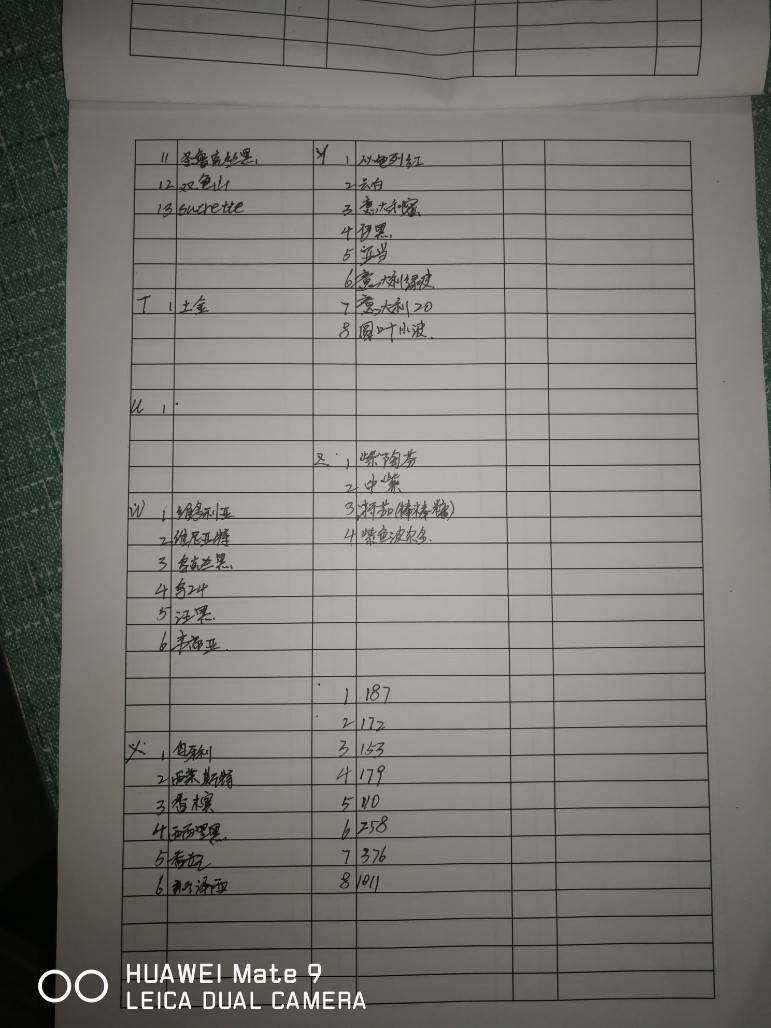 11 圣鲁吉丝黑
12 双色山
13 sucrette
T 1 土金
U 1
W 1 维多利亚
2 维尼亚特
3 乌克兰黑
4 乌24
5 汪黑
6
X 1 匈牙利
2 西莱斯特
3 香槟
4 西西里黑
5
6 新泽西
Y 1 以色列红
2 云白
3 意大利
4 伊黑
5 亚当
6 意大利绿波
7 意大利20
8 圆叶小波
Z 1 紫陶芬
2 中紫
3 (棒棒糖)
4 紫色波尔多
1 187
2 172
3 153
4 179
5 110
6 258
7 376
8 1011
HUAWEI Mate 9
LEICA DUAL CAMERA